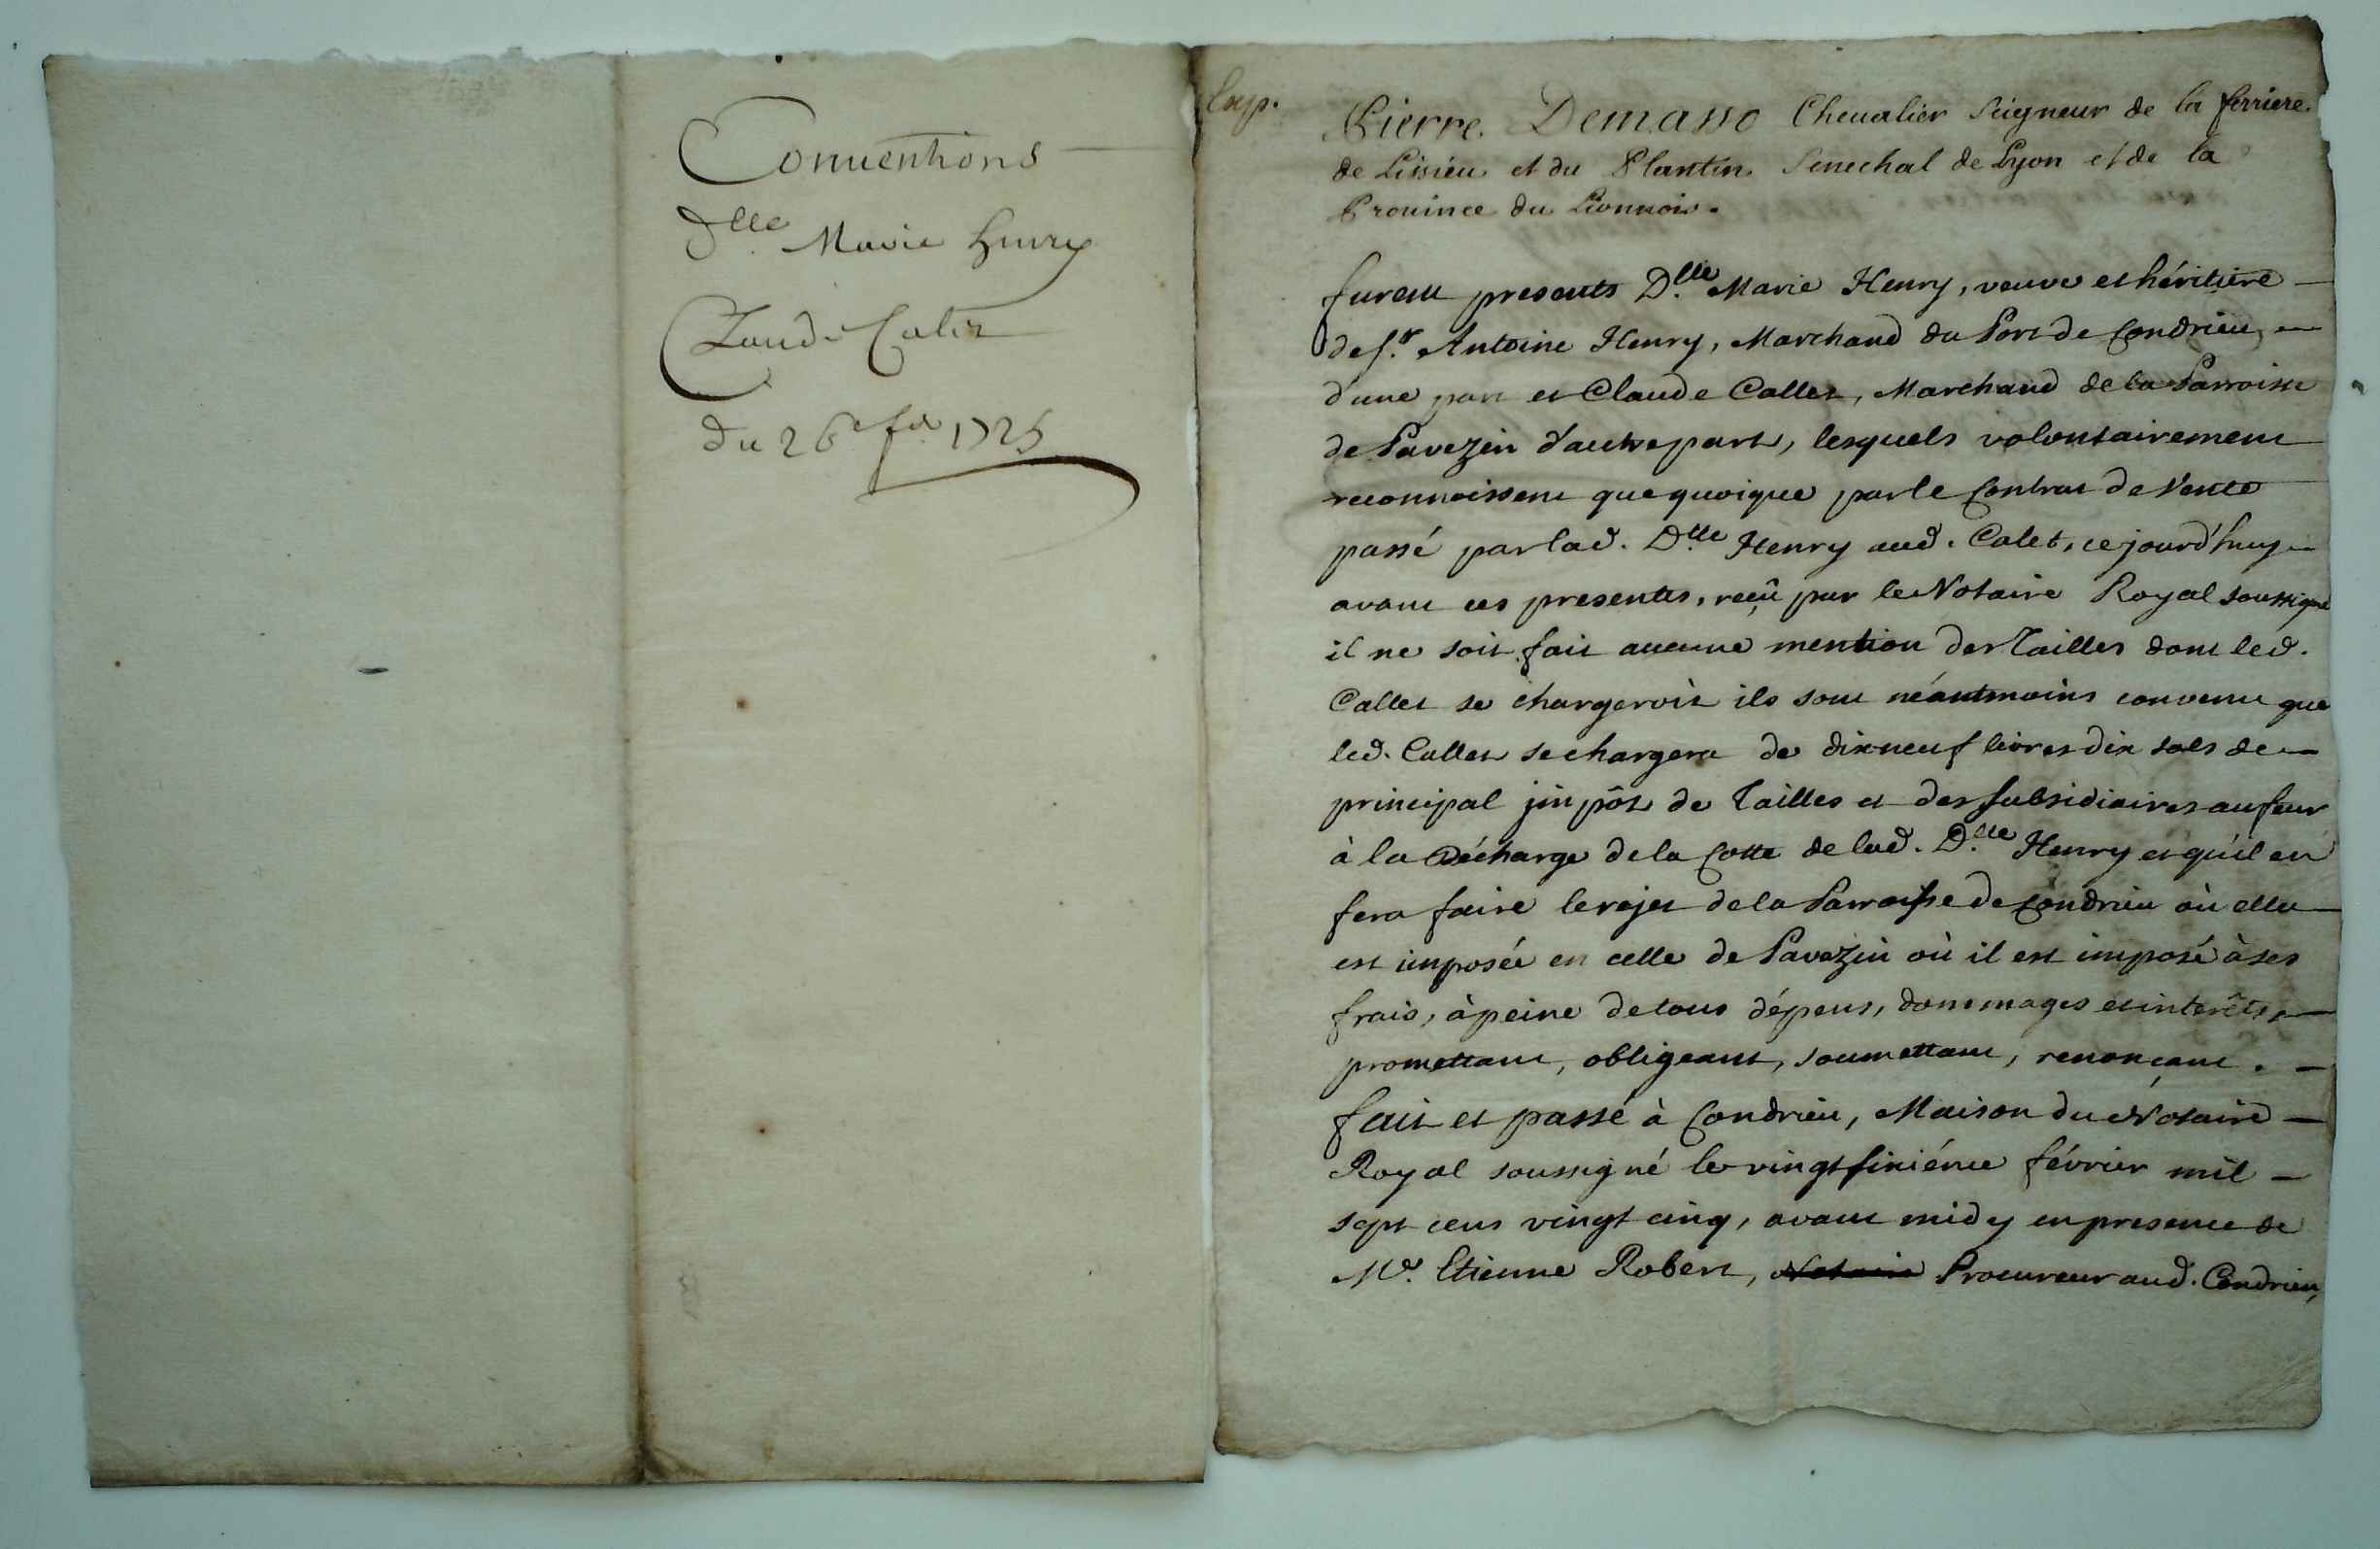 Conventions
Dlle Marie henry
Claude Calet
du 26e fer 1725
Exp.
Pierre Demasso Cheualier Seigneur de la ferriere
de Lissieu et du Plantin Senechal de Lyon et de la
Prouince du Lionnois.
furent presents D.lle Marie Henry, veuve et héritiere
de s.r Antoine Henry, Marchand du Port de Condrieu,
d'une part et Claude Callet, Marchand de la Parroisse
de Pavezin d'autre part, lesquels volontairement
reconnoissent que quoique par le Contrat de Vente
passé par lad. D.lle Henry aud. Calet, ce jourd'huy
avant ces presentes, reçû par le Notaire Royal soussigné
il ne soit fait aucune mention des Tailles dont led.
Callet se chargeroit ils sont néantmoins convenu que
led. Callet se chargera de dixneuf livres dix sols de
principal jmpôt de Tailles et des subsidiaires au feur
à la Décharge de la Cotte de lad. D.lle Henry et qu'il en
fera faire le rejet de la Parroisse de Condrieu où elle
est imposée en celle de Pavezin où il est imposé à ses
frais, à peine de tous dépens, dommages et interêts,
promettant, obligeant, soumettant, renonçant.
fait et passé à Condrieu, Maison du Notaire
Royal soussigné le vingt sixiéme février mil
sept cens vingt cinq, avant midy en presence de
Me. Etienne Robert, Notaire Procureur aud. Condrieu,